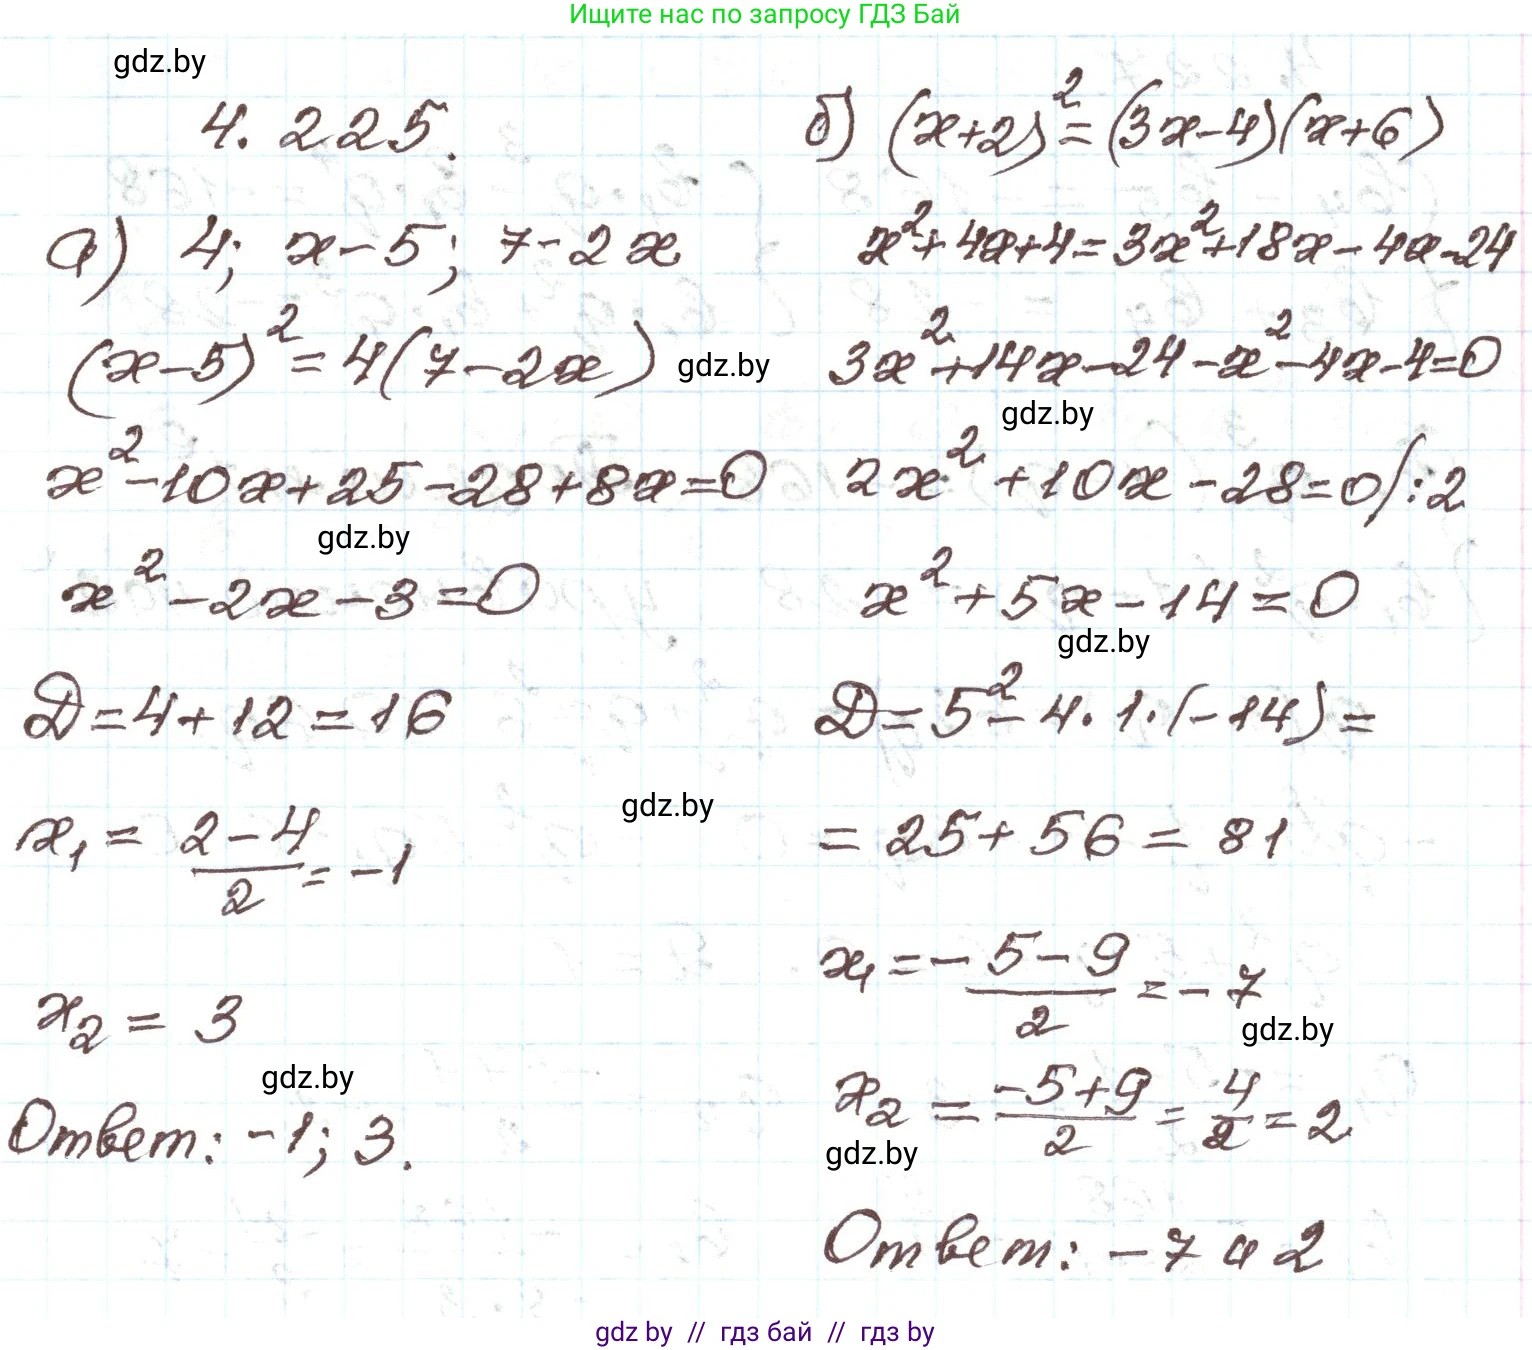 Ищите нас по запросу ГДЗ Бай
gdz.by
4.225.
а) 4; x-5; 7-2x
(x-5)²=4(7-2x)
gdz.by
x²-10x+25-28+8x=0
gdz.by
x²-2x-3=0
D=4+12=16
x₁ = (2-4)/2 = -1
gdz.by
x₂ = 3
gdz.by
Ответ: -1; 3.
б) (x+2)²=(3x-4)(x+6)
x²+4x+4=3x²+18x-4x-24
3x²+14x-24-x²-4x-4=0
gdz.by
2x²+10x-28=0/:2
x²+5x-14=0
gdz.by
D=5²-4·1·(-14)=
=25+56=81
x₁=-5-9/2=-7
gdz.by
x₂=-5+9/2=4/2=2
gdz.by
Ответ: -7 и 2
gdz by // гдз бай // гдз by